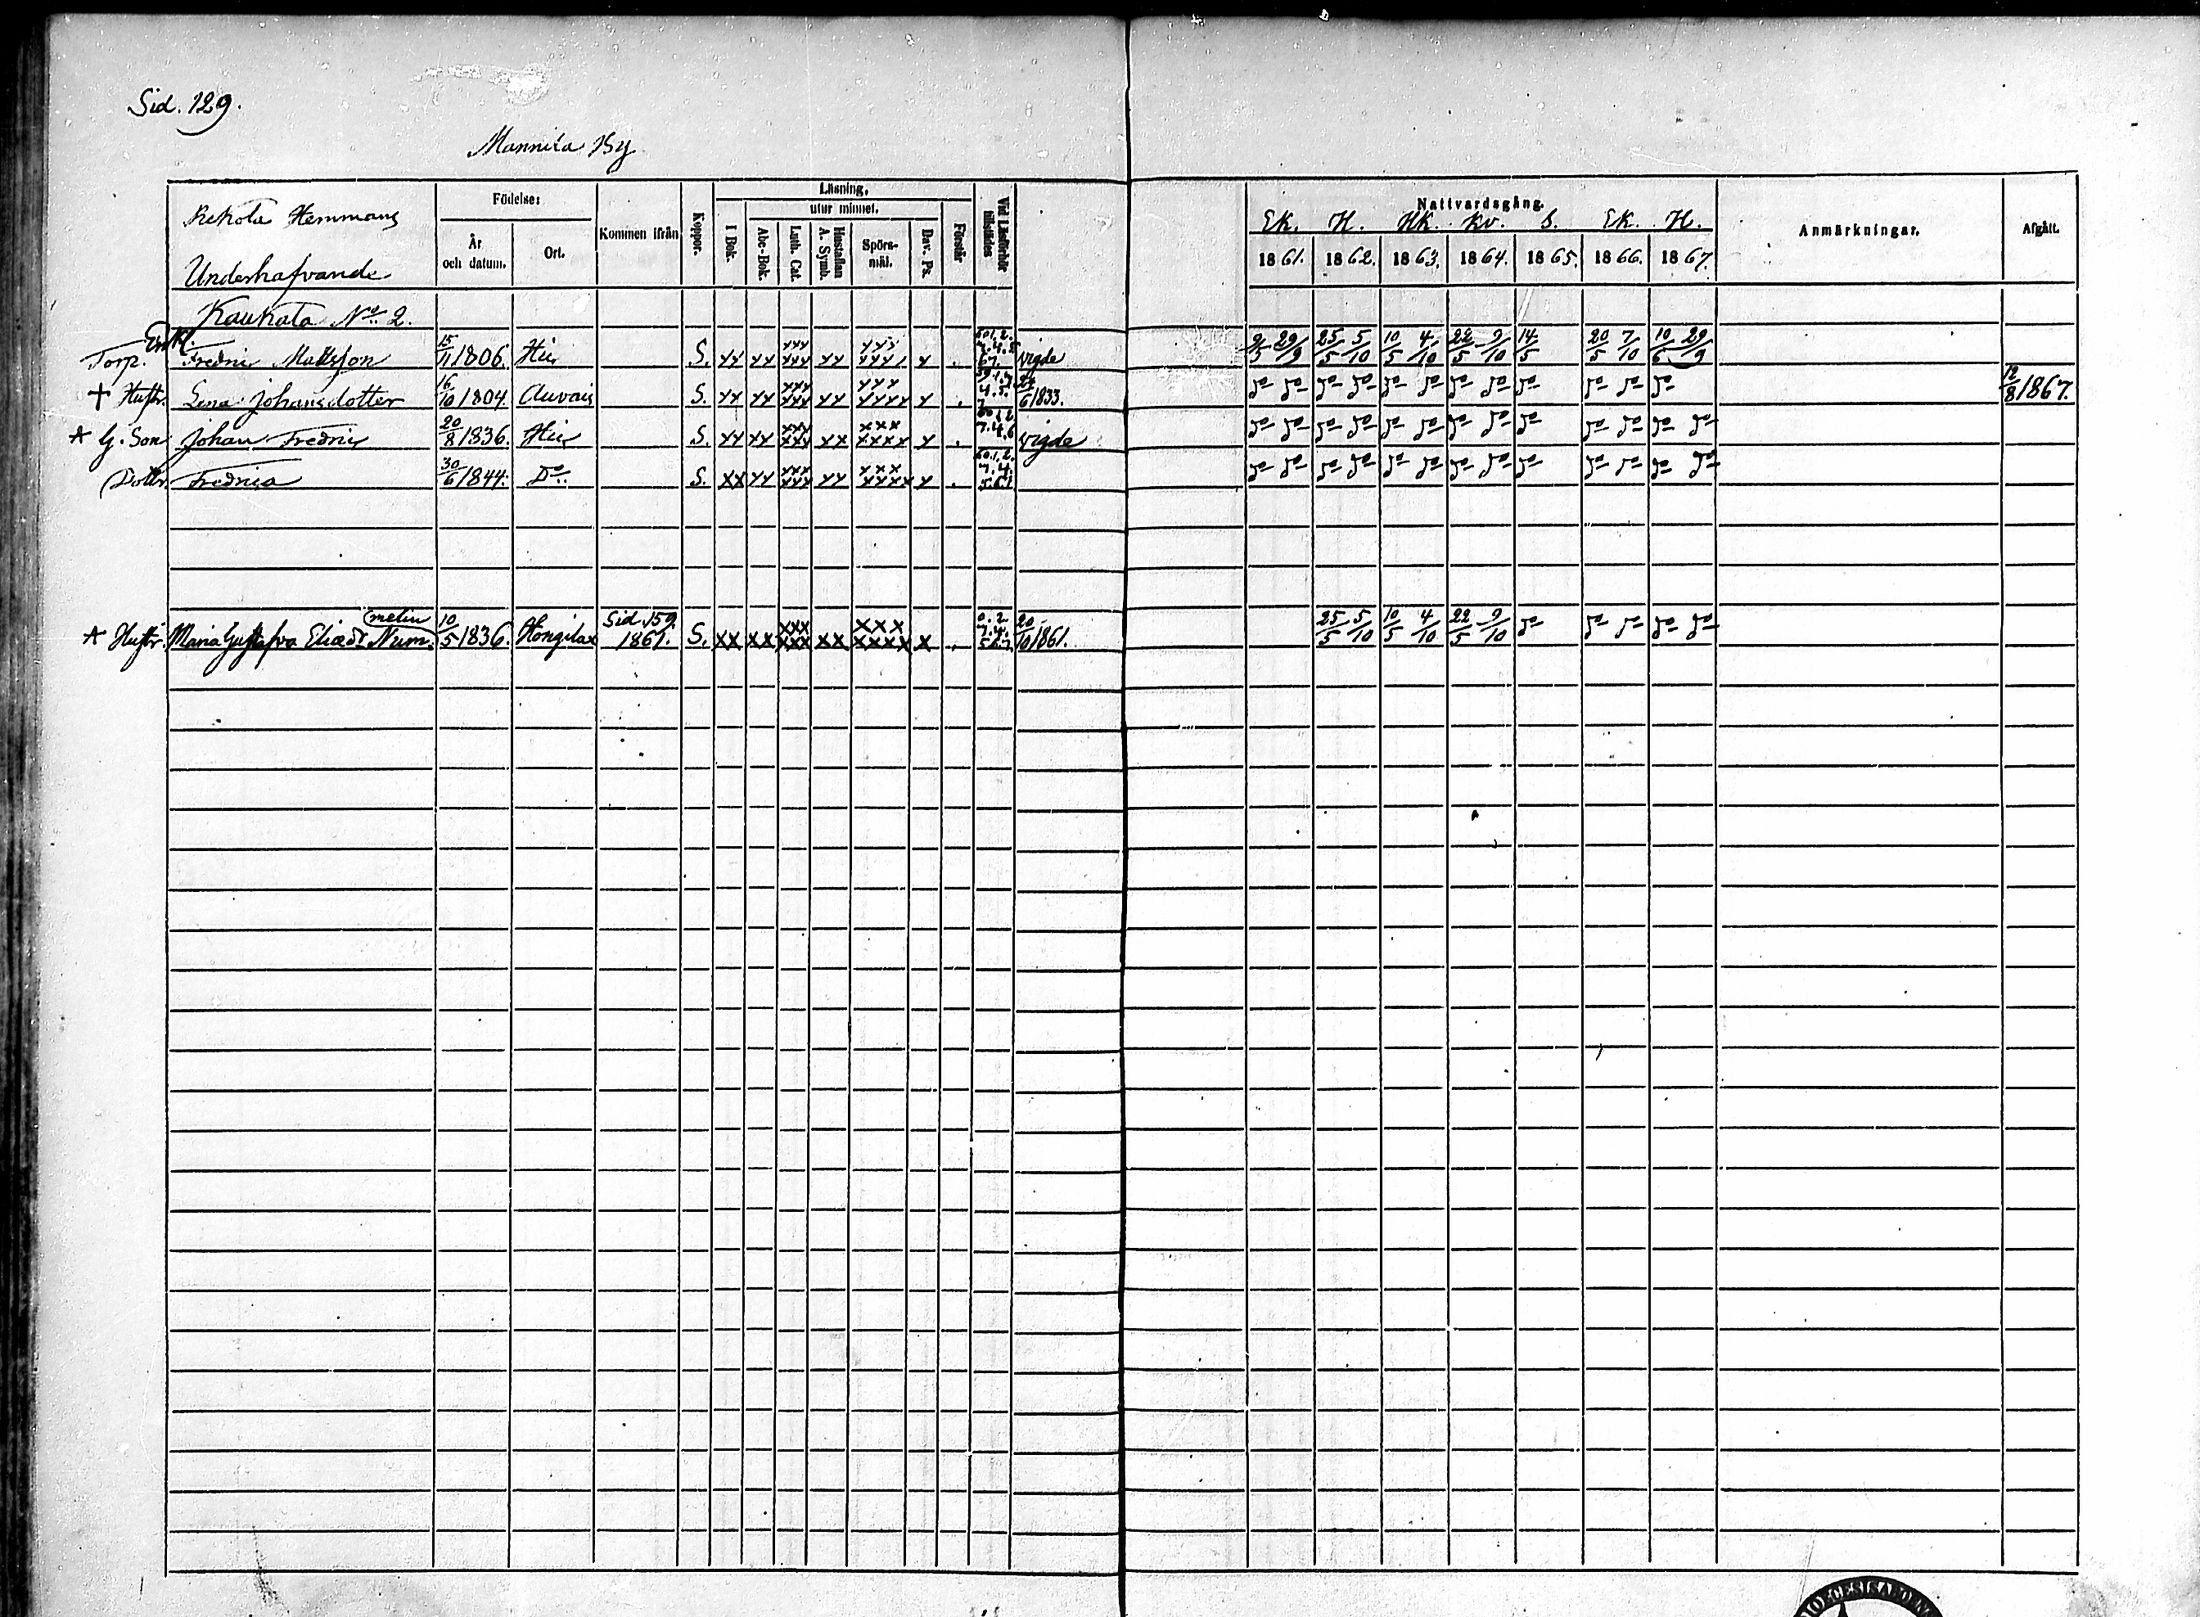 Sid. 129.
Mannila By
Rekola Hemmans
Underhafvande
Födelse:
År och datum.
Ort.
Kommen ifrån
Koppor.
Läsning,
utur minnet.
I Bok.
Abc-Bok.
Luth. Cat.
Hustaflan A. Symb.
Spörsmål.
Dav. Ps.
Förstår
Vid Läsförhör tillstädes
Nattvardsgång.
Ek. H. Hk. Kv. S. Ek. H.
1861. 1862. 1863. 1864. 1865. 1866. 1867.
Anmärkningar.
Afgått.
Kaukola No 2.
Enkl.
Torp. Fredric Mattsson 15/11 1806. Här S. xx xx xxx xxx xx xxx xxxx x . vigde 9/5 29/9 25/5 5/10 10/5 4/10 22/5 9/10 14/5 20/5 7/10 10/6 29/9
+ Hustr. Lena Johansdotter 16/10 1804. Auvais S. xx xx xxx xxx xx xxx xxxx x . 24/6 1833. do do do do do do do do do do do do 12/8 1867.
* G. Son Johan Fredric 20/8 1836. Här S. xx xx xxx xxx xx xxx xxxx x . vigde do do do do do do do do do do do do do
Dottr. Fredrica 30/6 1844. Do. S. xx xx xxx xxx xx xxx xxxx x . do do do do do do do do do do do do do
melin
* Hustr. Maria Gustafva Eliædr Num. 10/5 1836. Hongilax Sid. 159. 1861. S. xx xx xxx xxx xx xxx xxxx x . 20/10 1861. 25/5 5/10 10/5 4/10 22/5 9/10 do do do do do